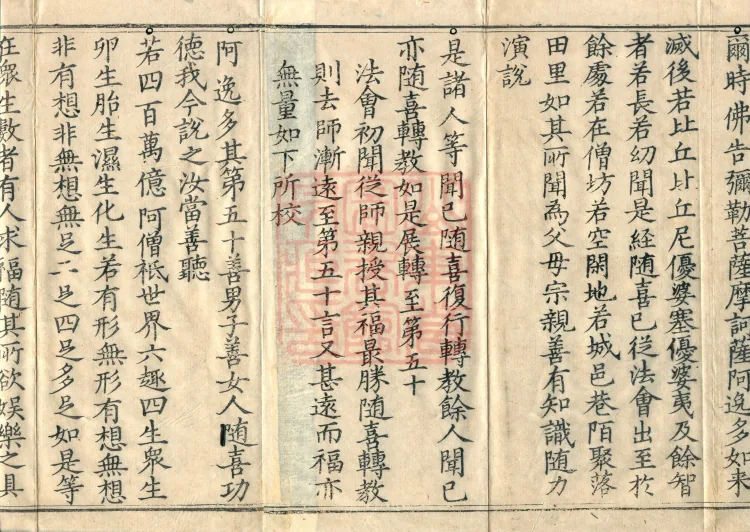 爾時佛告彌勒菩薩摩訶薩阿逸多如来
滅後若比丘比丘尼優婆塞優婆夷及餘智
者若長若幼聞是經随喜已從法會出至於
餘處若在僧坊若空閑地若城邑巷陌聚落
田里如其所聞為父母宗親善有知識随力
演說
是諸人等聞已随喜復行轉教餘人聞已
亦随喜轉教如是展轉至第五十
法會初聞從師親授其福最勝随喜轉教
則去師漸遠至第五十言又甚遠而福亦
無量如下所校
阿逸多其第五十善男子善女人随喜功
德我今説之汝當善聽
若四百萬億阿僧祇世界六趣四生衆生
卵生胎生濕生化生若有形無形有想無想
非有想非無想無足二足四足多足如是等
在衆生數者有人求福随其所欲娱樂之具